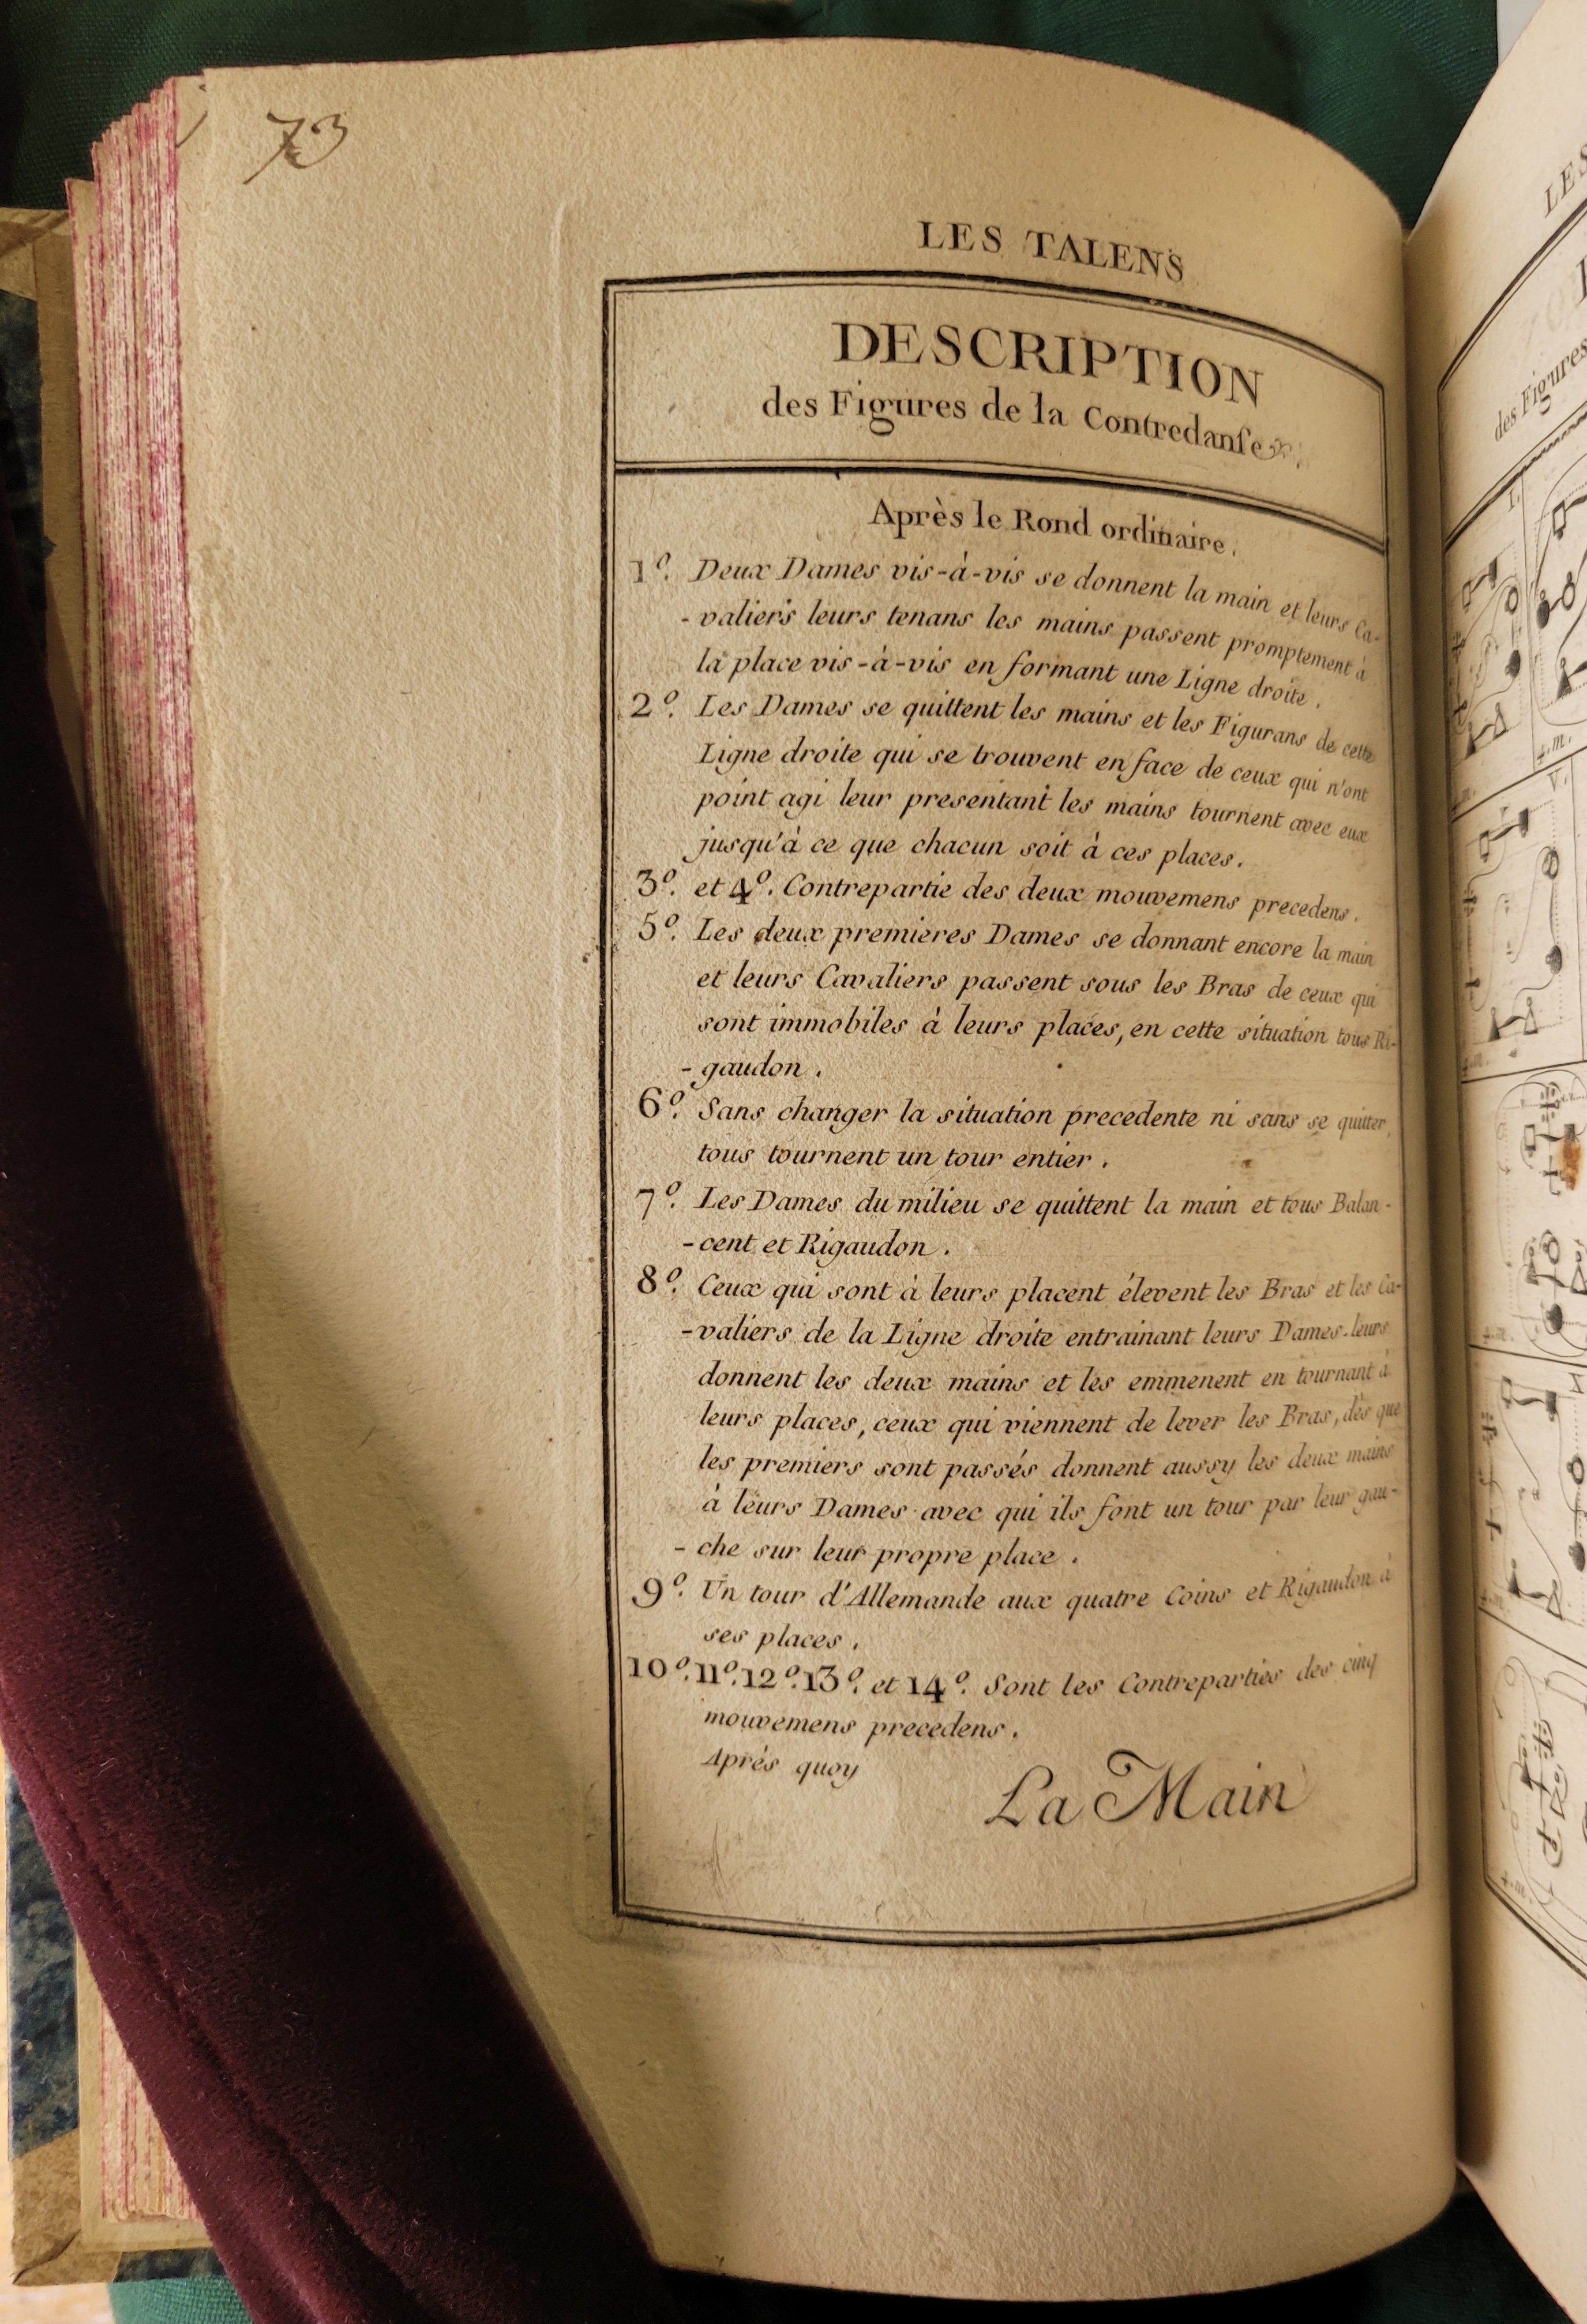 73
LES TALENS
DESCRIPTION
des Figures de la Contredanſe
Après le Rond ordinaire.
1º. Deux Dames vis-à-vis se donnent la main et leurs Ca-
-valiers leurs tenans les mains passent promptement à
la place vis-à-vis en formant une Ligne droite.
2º. Les Dames se quittent les mains et les Figurans de cette
Ligne droite qui se trouvent en face de ceux qui n'ont
point agi leur presentant les mains tournent avec eux
jusqu'à ce que chacun soit à ces places.
3º. et 4º. Contrepartie des deux mouvemens precedens.
5º. Les deux premieres Dames se donnant encore la main
et leurs Cavaliers passent sous les Bras de ceux qui
sont immobiles à leurs places, en cette situation tous Ri-
-gaudon.
6º. Sans changer la situation precedente ni sans se quitter,
tous tournent un tour entier.
7º. Les Dames du milieu se quittent la main et tous Balan-
-cent et Rigaudon.
8º. Ceux qui sont à leurs placent élevent les Bras et les Ca-
-valiers de la Ligne droite entrainant leurs Dames leurs
donnent les deux mains et les emmenent en tournant à
leurs places, ceux qui viennent de lever les Bras, dès que
les premiers sont passés donnent aussy les deux mains
à leurs Dames avec qui ils font un tour par leur gau-
-che sur leur propre place.
9º. Un tour d'Allemande aux quatre Coins et Rigaudon à
ses places.
10º. 11º. 12º. 13º. et 14º. Sont les Contreparties des cinq
mouvemens precedens.
Après quoy
La Main
LES
des Figures